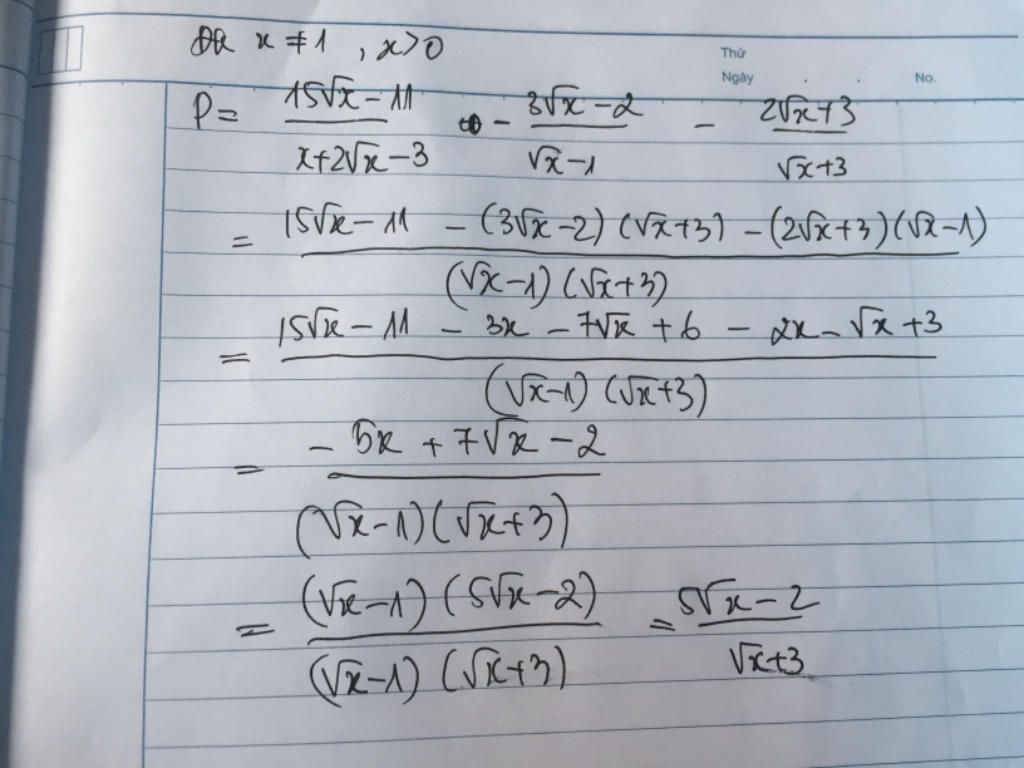 ĐK x ≠ 1 , x > 0
Thứ
Ngày . . No.
P = (15√x − 11)/(x + 2√x − 3) − (3√x − 2)/(√x − 1) − (2√x + 3)/(√x + 3)
= (15√x − 11 − (3√x − 2)(√x + 3) − (2√x + 3)(√x − 1))/((√x − 1)(√x + 3))
= (15√x − 11 − 3x − 7√x + 6 − 2x − √x + 3)/((√x − 1)(√x + 3))
= (− 5x + 7√x − 2)/((√x − 1)(√x + 3))
= ((√x − 1)(5√x − 2))/((√x − 1)(√x + 3)) = (5√x − 2)/(√x + 3)